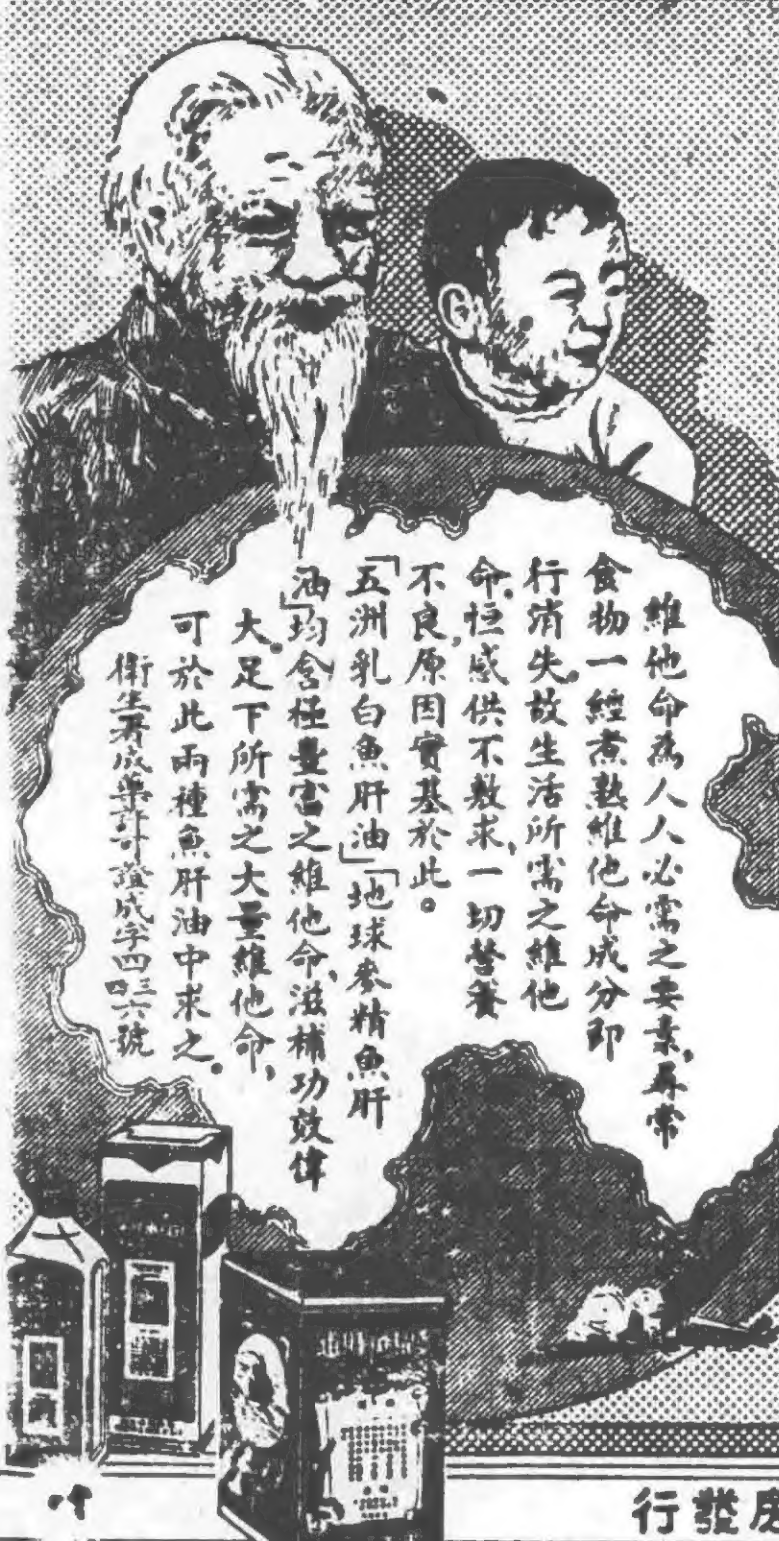 維他命為人人必需之要素，尋常
食物一經煮熟維他命成分即
行消失，故生活所需之維他
命，恒感供不敷求，一切營養
不良，原因實基於此。
「五洲乳白魚肝油」「地球麥精魚肝
油」均含極豐富之維他命，滋補功效偉
大。足下所需之大量維他命，
可於此兩種魚肝油中求之。
衛生署成藥許可證成字四四三六號
行發房